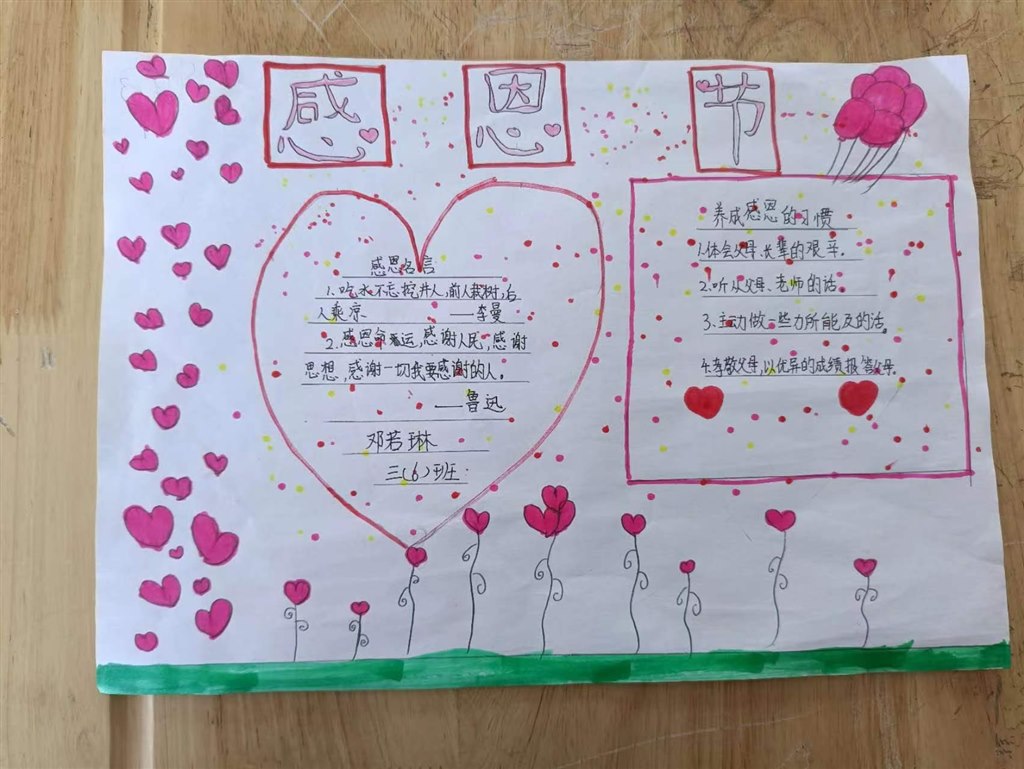 感恩节
感恩名言
1.吃水不忘挖井人,前人栽树,后
人乘凉 ——李曼
2.感恩命运,感谢人民,感谢
思想,感谢一切我要感谢的人。
——鲁迅
邓若琳
三(6)班
养成感恩的习惯
1.体会父母、长辈的艰辛。
2.听从父母、老师的话。
3.主动做一些力所能及的活。
4.孝敬父母,以优异的成绩报答父母。